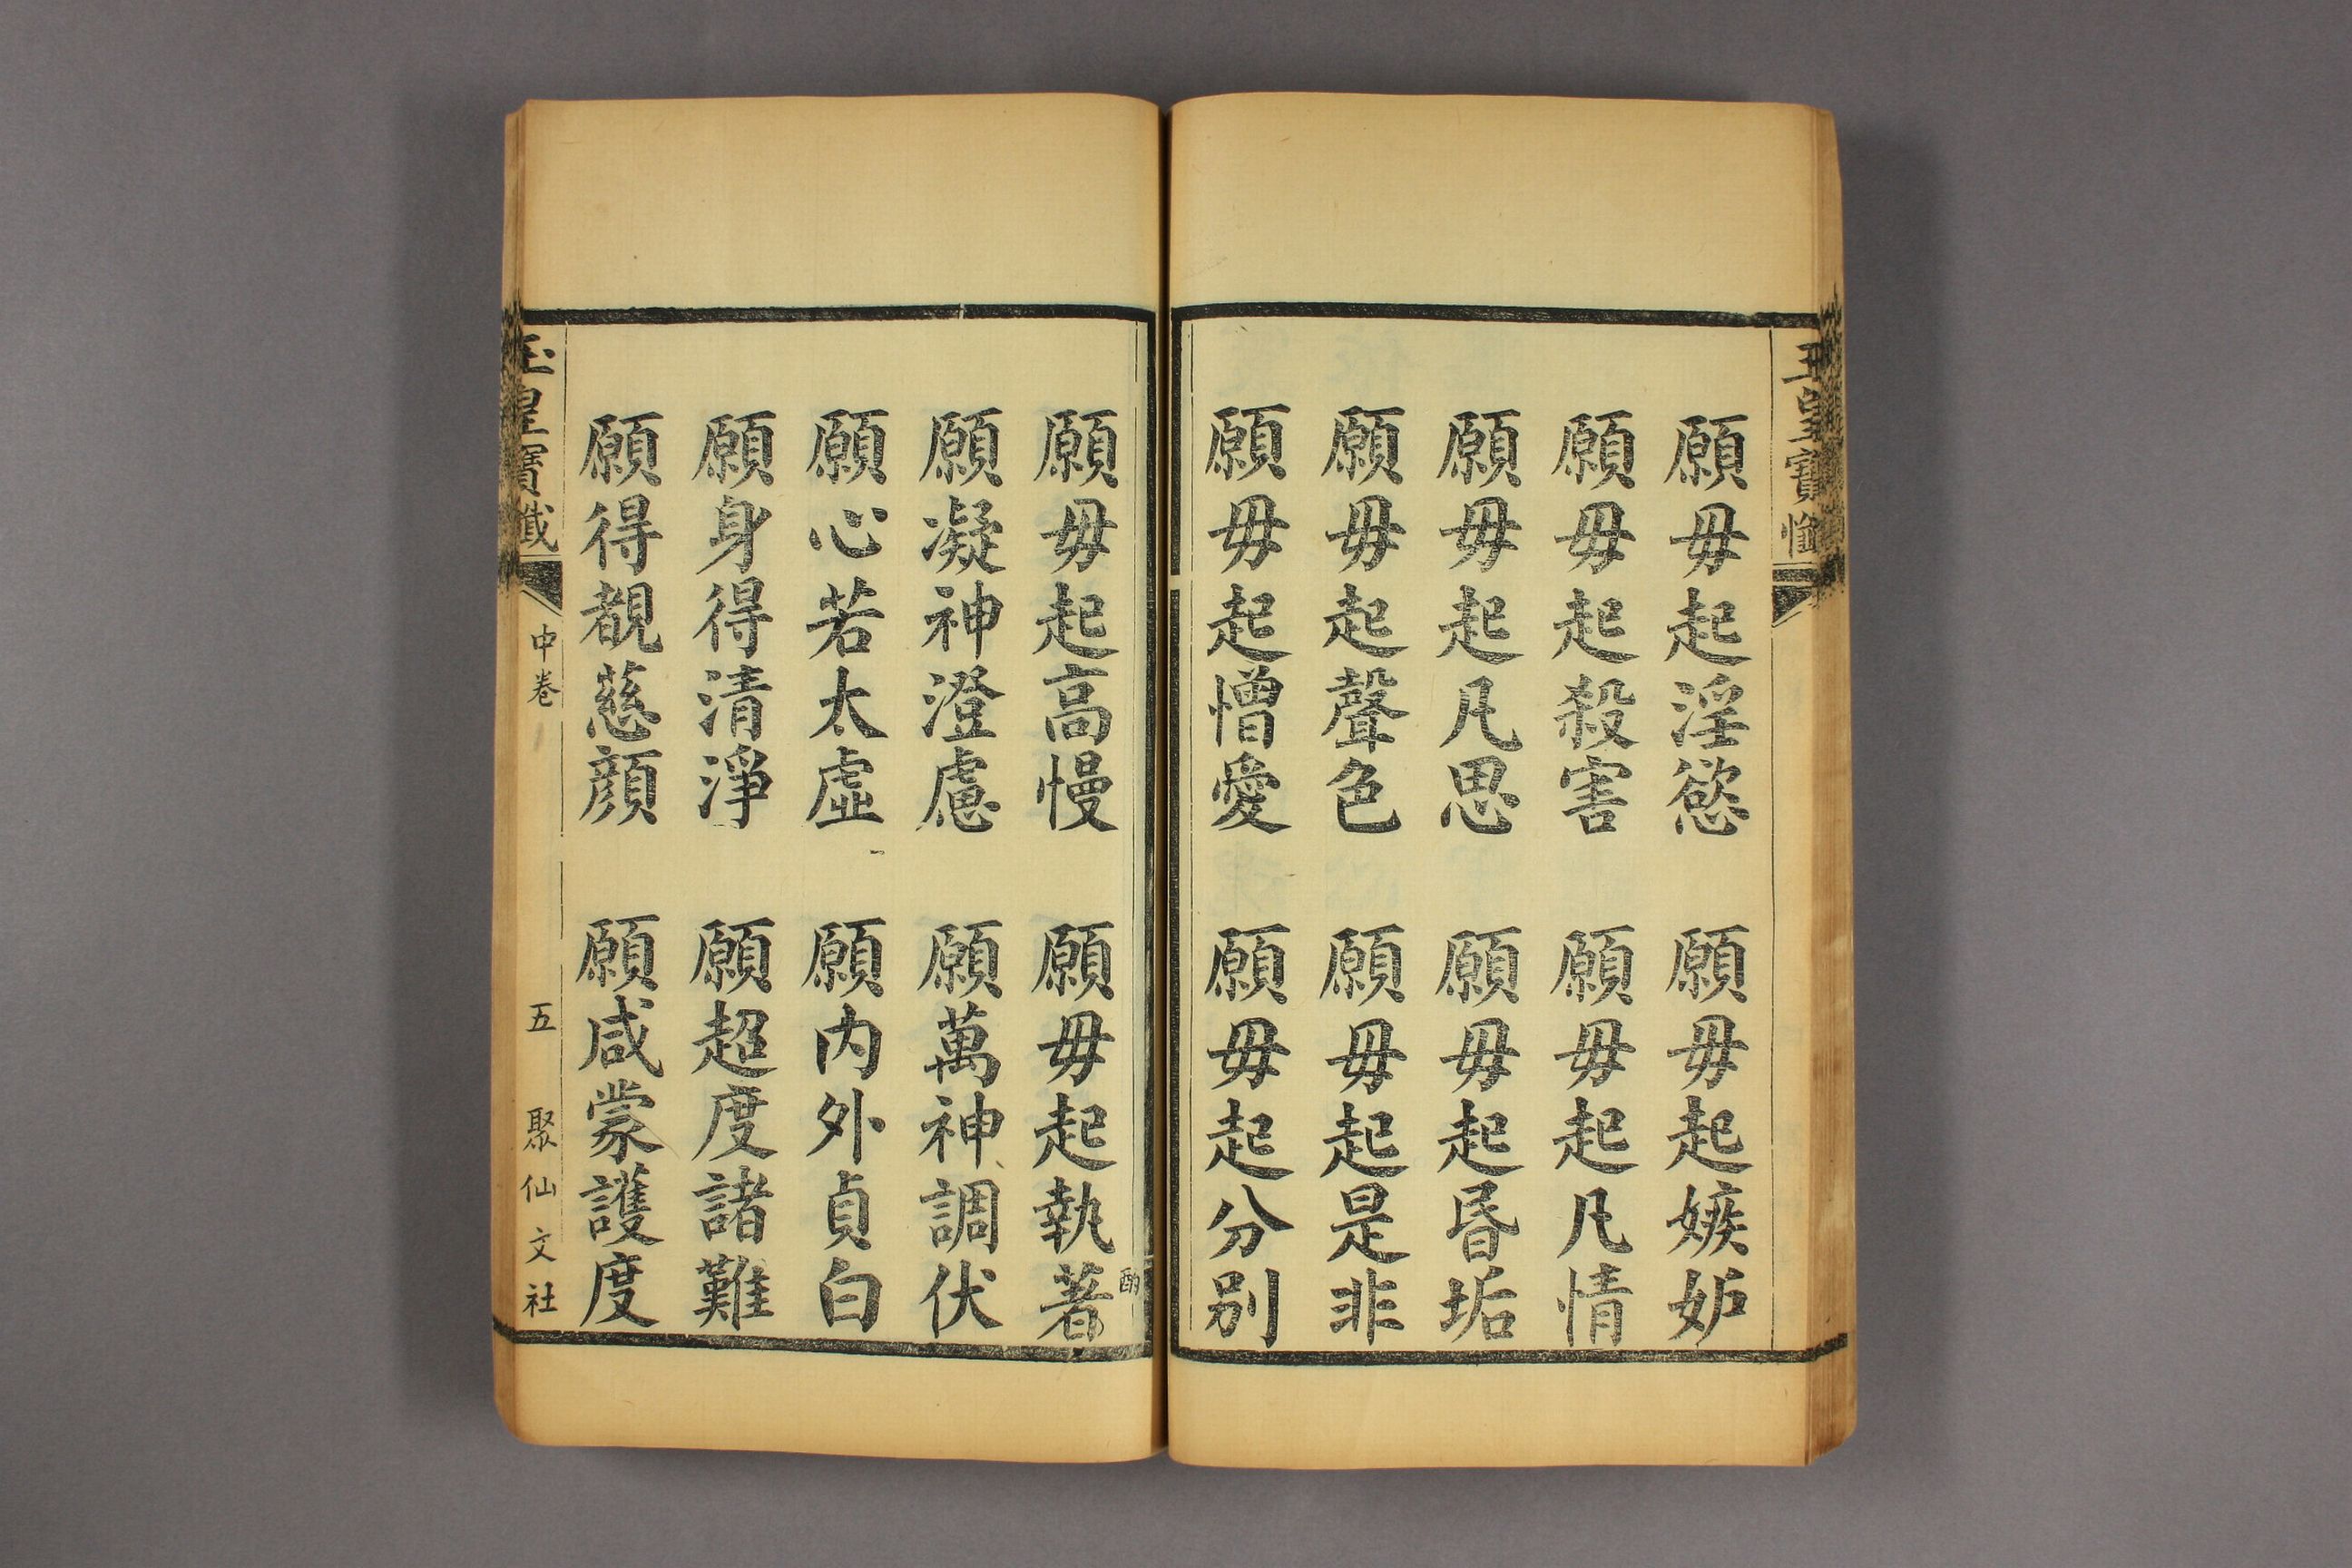 玉皇寶懺
願毋起淫慾　願毋起嫉妒
願毋起殺害　願毋起凡情
願毋起凡思　願毋起昏垢
願毋起聲色　願毋起是非
願毋起憎愛　願毋起分別
願毋起高慢　願毋起執著
願凝神澄慮　願萬神調伏
願心若太虛　願内外貞白
願身得清淨　願超度諸難
願得覩慈顔　願咸蒙護度
玉皇寶懺　中卷　五　聚仙文社